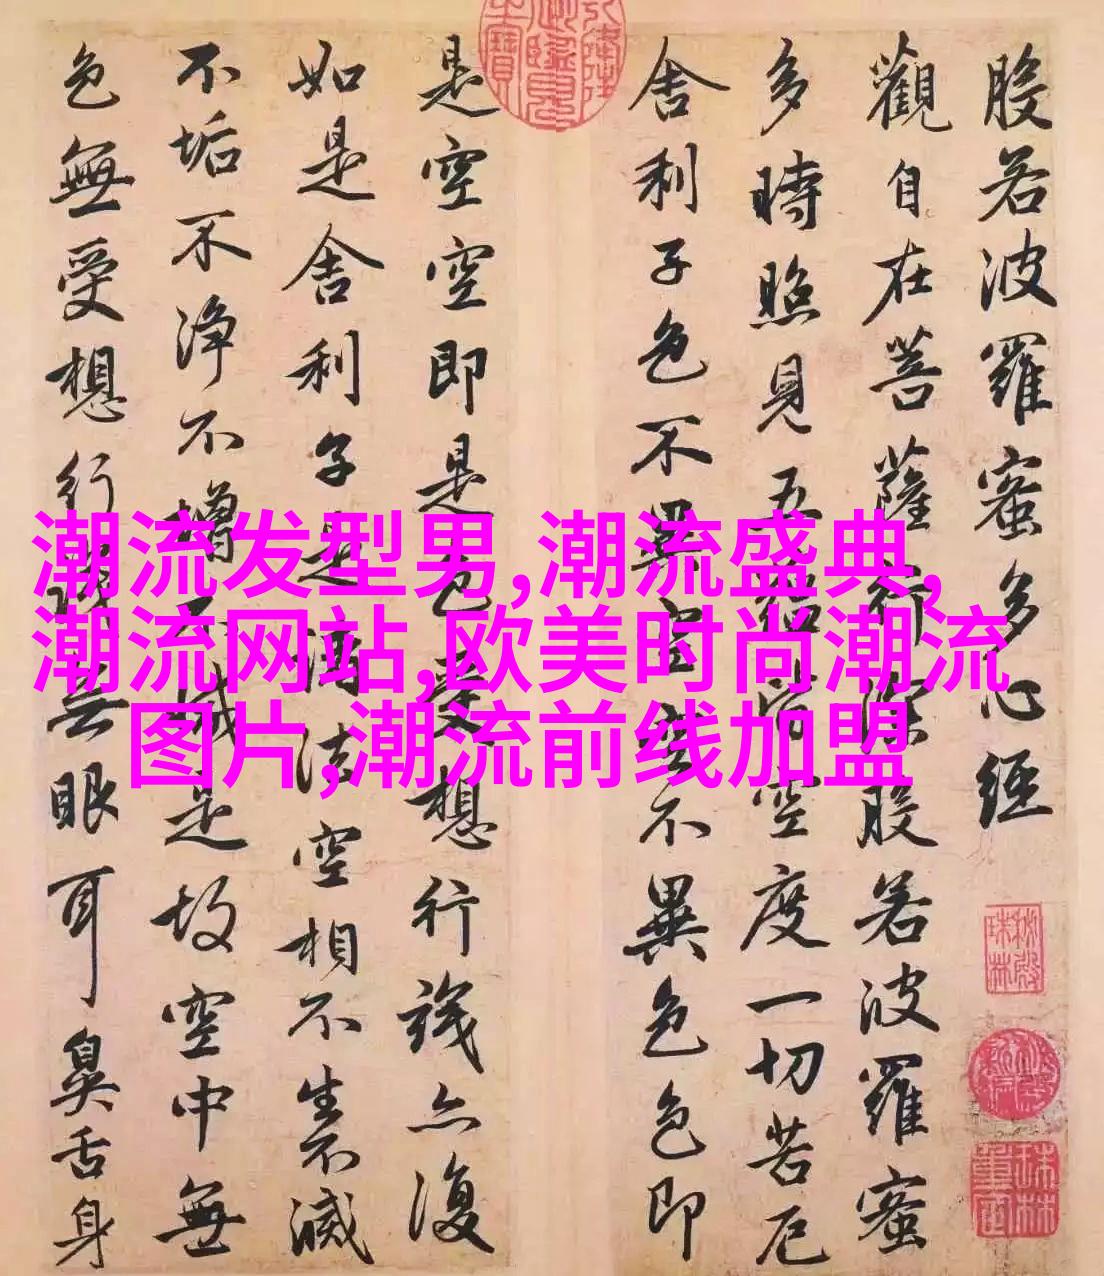 般若波羅蜜多心経
觀自在菩薩行深般若波羅蜜
多時照見五蘊皆空度一切苦厄
舍利子色不異空空不異色色即
是空空即是色受想行識亦復
如是舍利子是諸法空相不生不滅
不垢不净不增不減是故空中無
色無受想行識無眼耳鼻舌身
潮流发型男,潮流盛典,
潮流网站,欧美时尚潮流
图片,潮流前线加盟
秘殿珠林
珠林重定